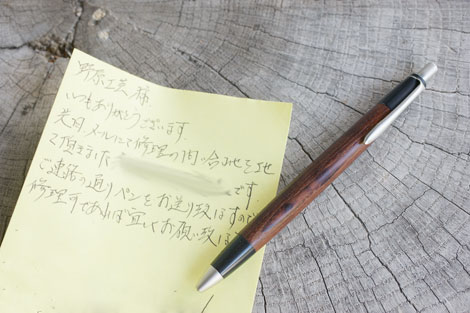 野原工芸様
いつもありがとうございます
先日メールにて修理の問い合わせを
て頂きました です
ご連絡の通りペンをお送り致しますので
修理可であれば宜しくお願い致し